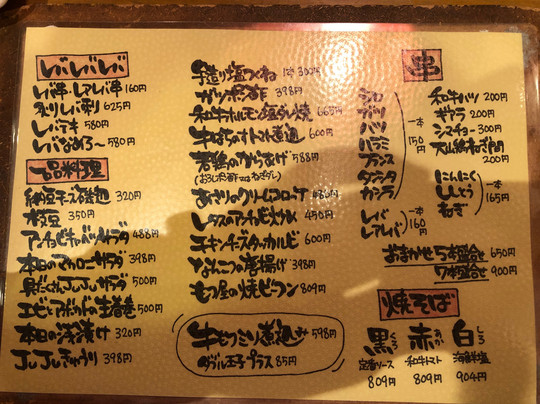 レバレバレバ
レバ串 レアレバ串 160円
炙りレバ刺り 625円
レバテキ 580円
レバなめろ〜 580円
一品料理
納豆チーズ磯辺 320円
枝豆 350円
アンチョビキャベツサラダ 488円
本日のマカロニサラダ 398円
具だくさんJuJuサラダ 500円
エビとアボカドの生春巻 500円
本日の浅漬け 320円
JuJuきゅうり 398円
手造り塩つくね 1本 300円
ガツポン酢 398円
和牛ホルモン塩ダレ焼 665円
牛はちのすトマト煮込 600円
若鶏のからあげ 588円
(おろしポン酢又はねぎダレ)
あさりのクリームコロッケ 486円
レタスのアンチョビ炒め 450円
チキンチーズタッカルビ 600円
なんこつの唐揚げ 398円
もつ屋の焼ビーフン 809円
牛もつミソ煮込み 598円
ダブル玉子プラス 85円
串
シロ
ガツ
ハツ
ハラミ
フランス
タンシタ
カシラ
一本150円
レバ
レアレバ
一本160円
和牛ハツ 200円
ギアラ 200円
シマチョー 300円
大山鶏ねぎ間 200円
にんにく
ししとう
ねぎ
一本165円
おまかせ 5本盛合せ 650円
7本盛合せ 900円
焼そば
黒 くろ 赤 あか 白 しろ
定番ソース 和牛トマト 海鮮塩
809円 809円 904円